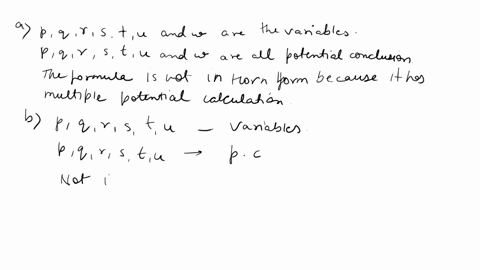 a) p, q, r, s, t, u and w are the variables.
p, q, r, s, t, u and w are all potential conclusion
The formula is not in Horn form because it has
multiple potential calculation.
b) p, q, r, s, t, u — variables.
p, q, r, s, t, u → p.c
Not i